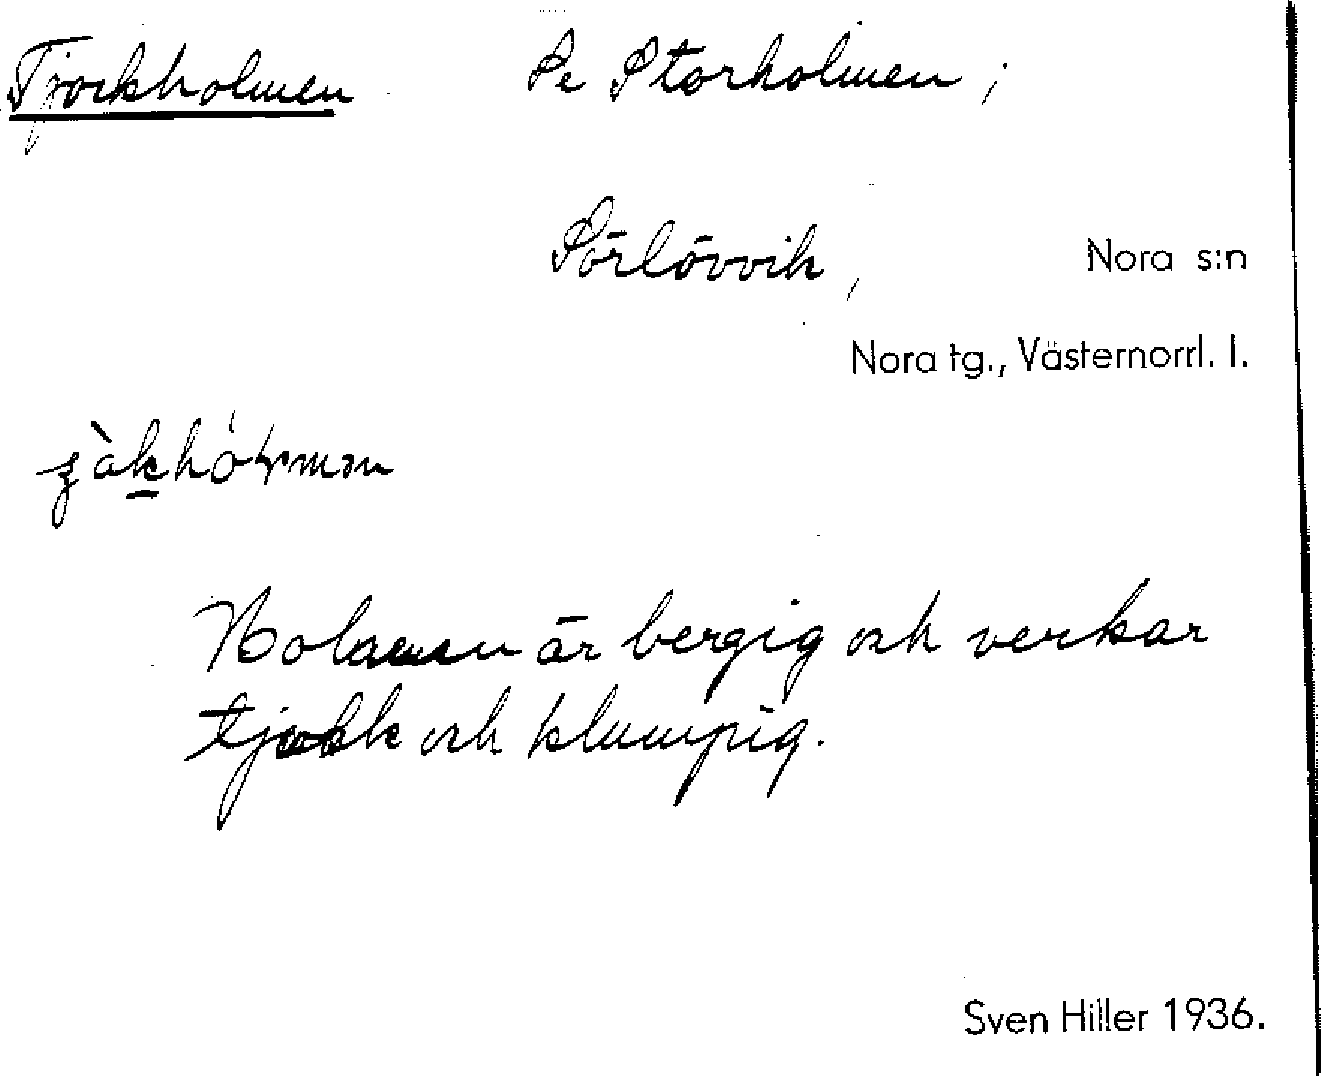 Tjockholmen Se Storholmen,
Sörlövvik, Nora s:n
Nora tg., Västernorrl. l.
Holmen är bergig och verkar
tjock och klumpig.
Sven Hiller 1936.